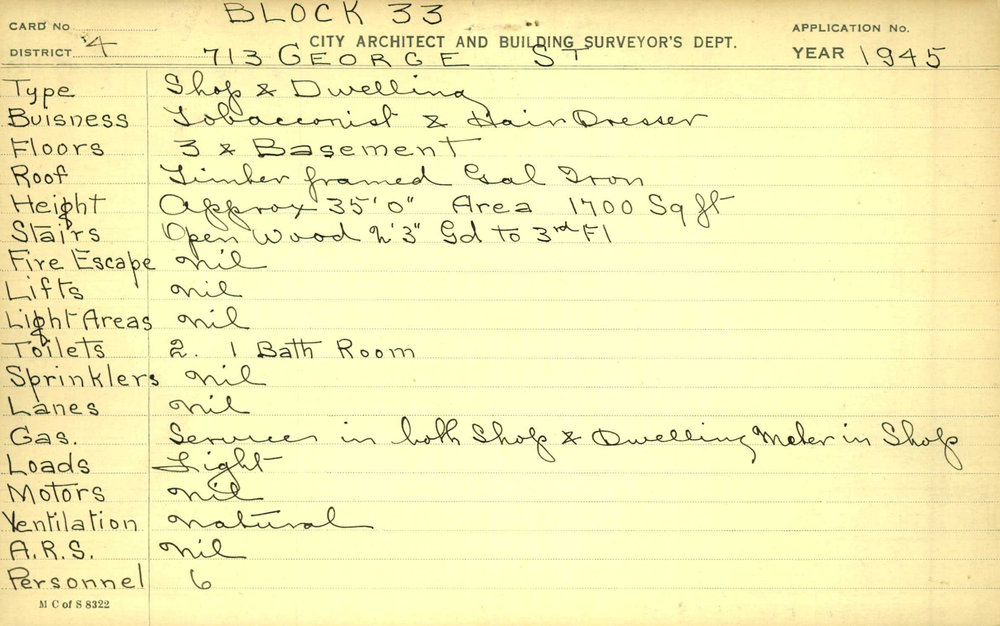 BLOCK 33
CARD No.
APPLICATION No.
DISTRICT 4
CITY ARCHITECT AND BUILDING SURVEYOR'S DEPT.
713 GEORGE ST
YEAR 1945
Type Shop & Dwelling
Buisness Tobacconist & HairDresser
Floors 3 & Basement
Roof Timber framed Gal Iron
Height Approx 35'0" Area 1700 Sq ft
Stairs Open Wood 2'3" Gd to 3rd Fl
Fire Escape nil
Lifts nil
Light Areas nil
Toilets 2. 1 Bath Room
Sprinklers nil
Lanes nil
Gas. Services in both Shop & Dwelling Meter in Shop
Loads Light
Motors nil
Ventilation natural
A.R.S. nil
Personnel 6
M C of S 8322